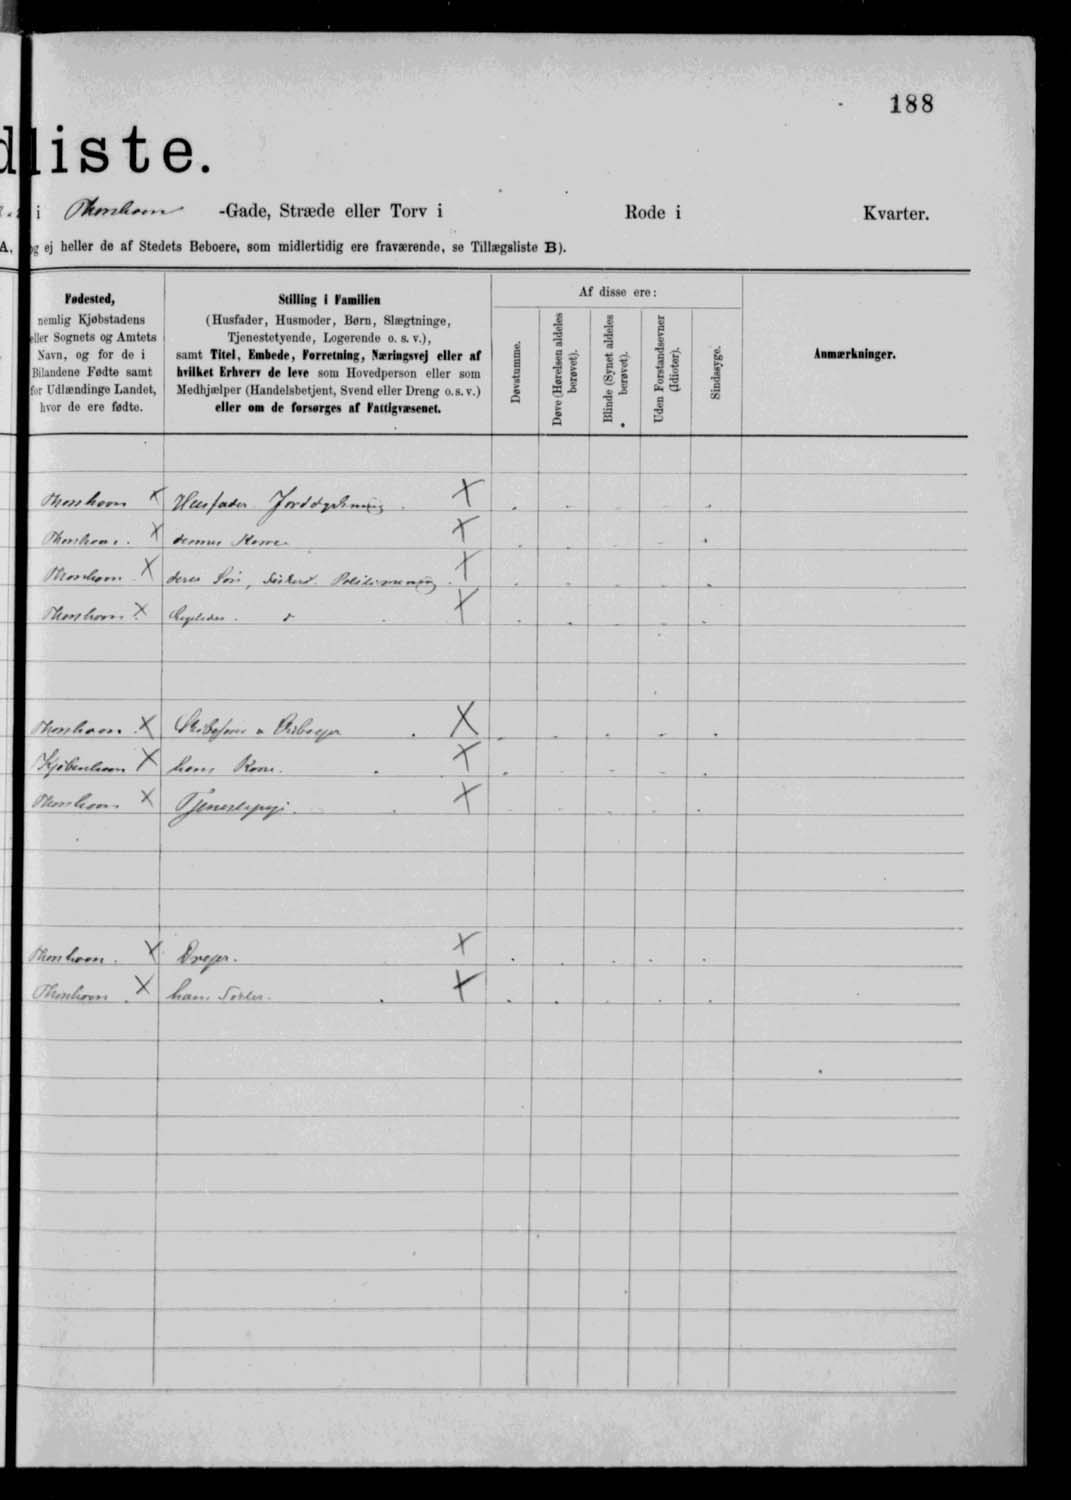 188
dliste.
i Thorshavn -Gade, Stræde eller Torv i Rode i Kvarter.
A. og ej heller de af Stedets Beboere, som midlertidig ere fraværende, se Tillægsliste B).
Fødested,
nemlig Kjøbstadens
eller Sognets og Amtets
Navn, og for de i
Bilandene Fødte samt
for Udlændinge Landet,
hvor de ere fødte.
Stilling i Familien
(Husfader, Husmoder, Børn, Slægtninge,
Tjenestetyende, Logerende o. s. v.),
samt Titel, Embede, Forretning, Næringsvej eller af
hvilket Erhverv de leve som Hovedperson eller som
Medhjælper (Handelsbetjent, Svend eller Dreng o. s. v.)
eller om de forsørges af Fattigvæsenet.
Af disse ere:
Døvstumme.
Døve (Hørelsen aldeles
berøvet).
Blinde (Synet aldeles
berøvet).
Uden Forstandsevner
(Idioter).
Sindssyge.
Anmærkninger.
Thorshavn X Husfader. Jorddyrkning X
Thorshavn. X dennes Kone X
Thorshavn X deres Søn, X
Thorshavn X Ligeledes. d X
Thorshavn X X
Kjøbenhavn X hans Kone. X
Thorshavn X Tjenestepige. X
Thorshavn. X Drejer. X
Thorshavn X hans Søster. X